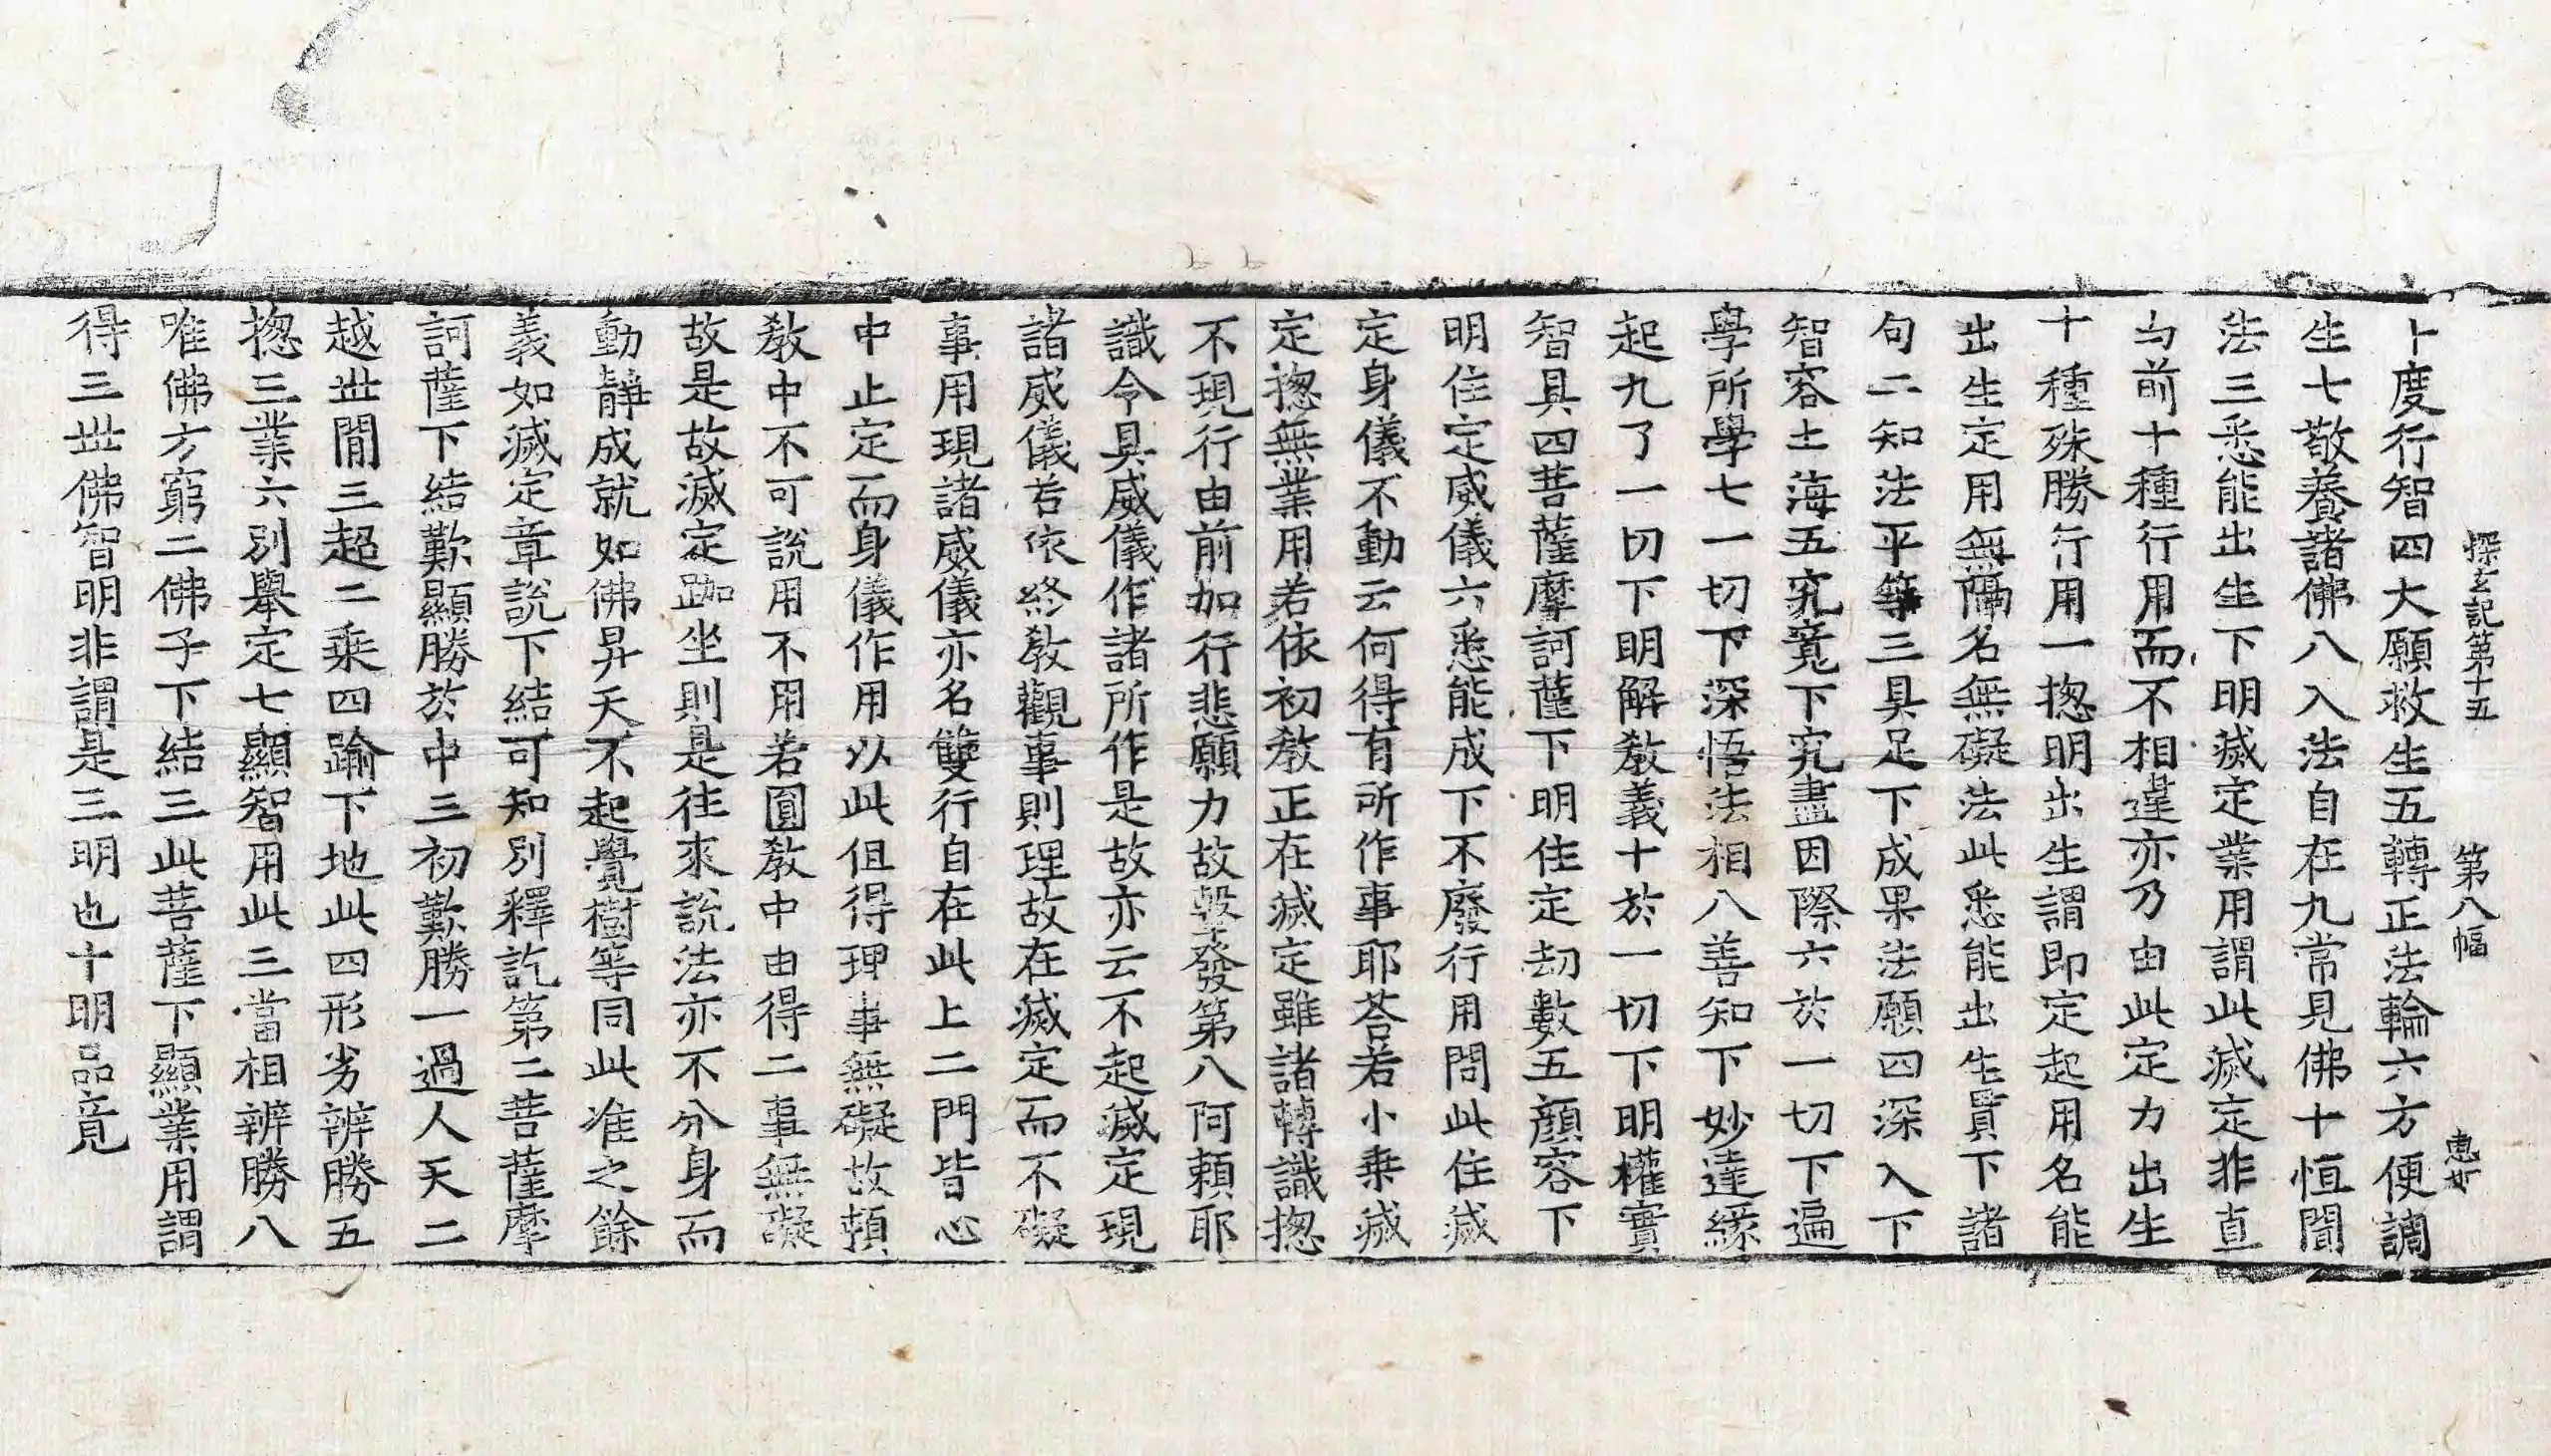 探玄記第十五 第八幅
十度行智四大願救生五轉正法輪六方便調
生七敬養諸佛八入法自在九常見佛十恒聞
法三悉能出生下明滅定業用謂此滅定非直
与前十種行用而不相違亦乃由此定力出生
十種殊勝行用一揔明出生謂即定起用名能
出生定用無隔名無礙法此悉能出生貫下諸
句二知法平等三具足下成果法願四深入下
智容土海五究竟下究盡因際六於一切下遍
學所學七一切下深悟法相八善知下妙達緣
起九了一切下明解教義十於一切下明權實
智具四菩薩摩訶薩下明住定劫數五顏容下
明住定威儀六悉能成下不廢行用問此住滅
定身儀不動云何得有所作事耶荅若小乗滅
定揔無業用若依初教正在滅定雖諸轉識揔
不現行由前加行悲願力故擊發第八阿賴耶
識令具威儀作諸所作是故亦云不起滅定現
諸威儀若依終教觀事則理故在滅定而不礙
事用現諸威儀亦名雙行自在此上二門皆心
中止定而身儀作用以此但得理事無礙故頓
教中不可說用不用若圓教中由得二事無礙
故是故滅定跏坐則是往來說法亦不分身而
動靜成就如佛昇天不起覺樹等同此准之餘
義如滅定章說下結可知別釋訖第二菩薩摩
訶薩下結歎顯勝於中三初歎勝一過人天二
越世間三超二乗四踰下地此四形劣辨勝五
揔三業六別舉定七顯智用此三當相辨勝八
唯佛方窮二佛子下結三此菩薩下顯業用謂
得三世佛智明非謂是三明也十明品竟